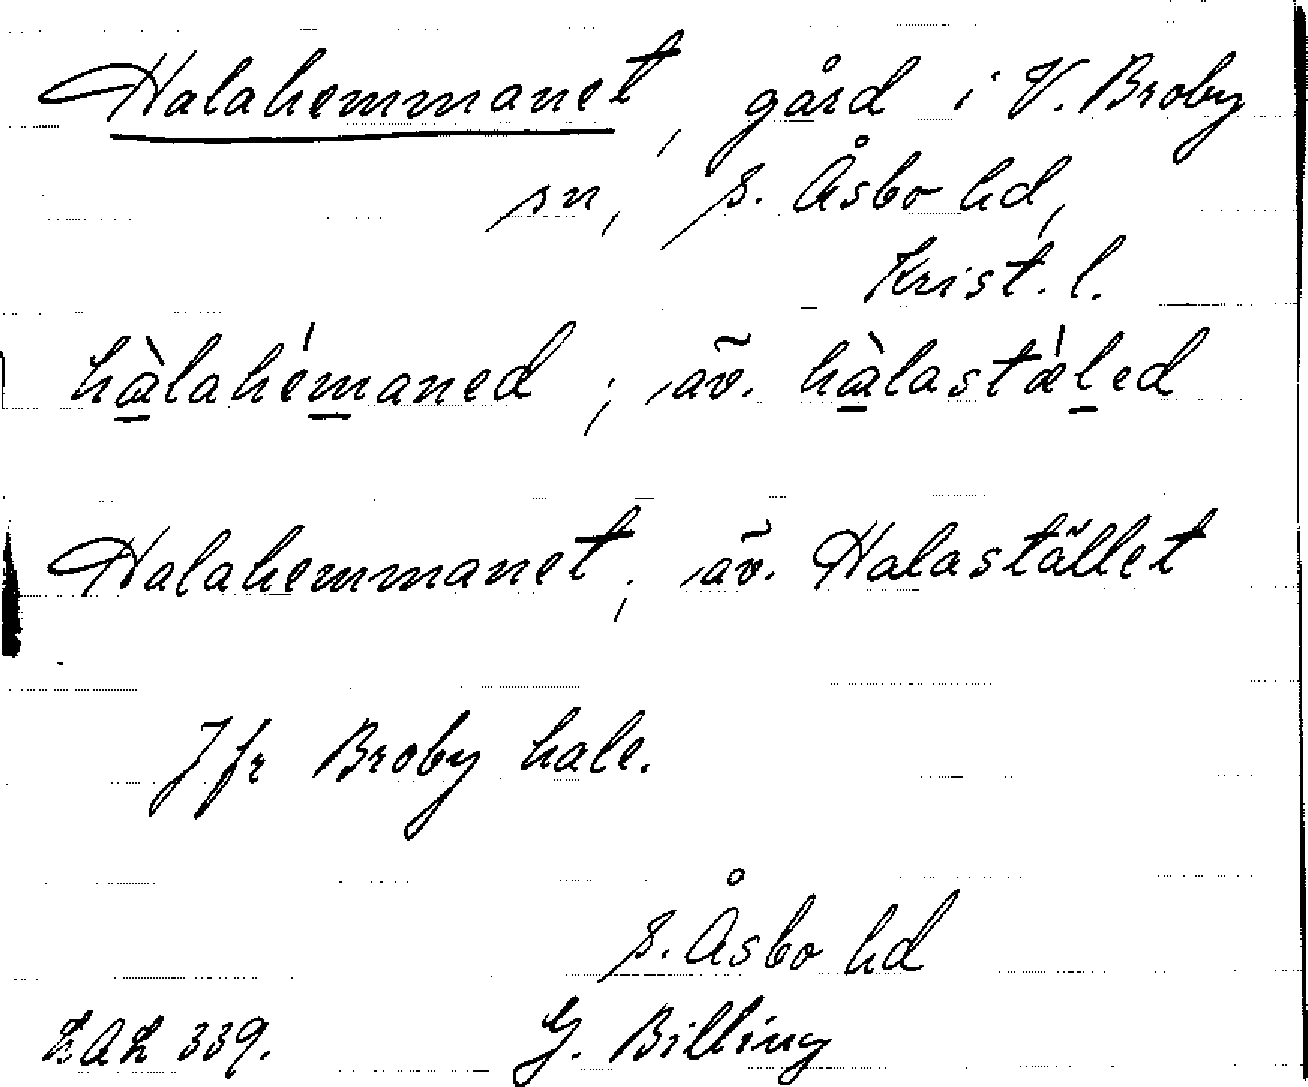 Halahemmanet, gård i V. Broby
sn, S. Åsbo hd,
Krist. l.
hàlahémaned; äv. hàlastǽled
Halahemmanet; äv. Halastället
Jfr Broby hale.
S. Åsbo hd
LAL 339. G. Billing